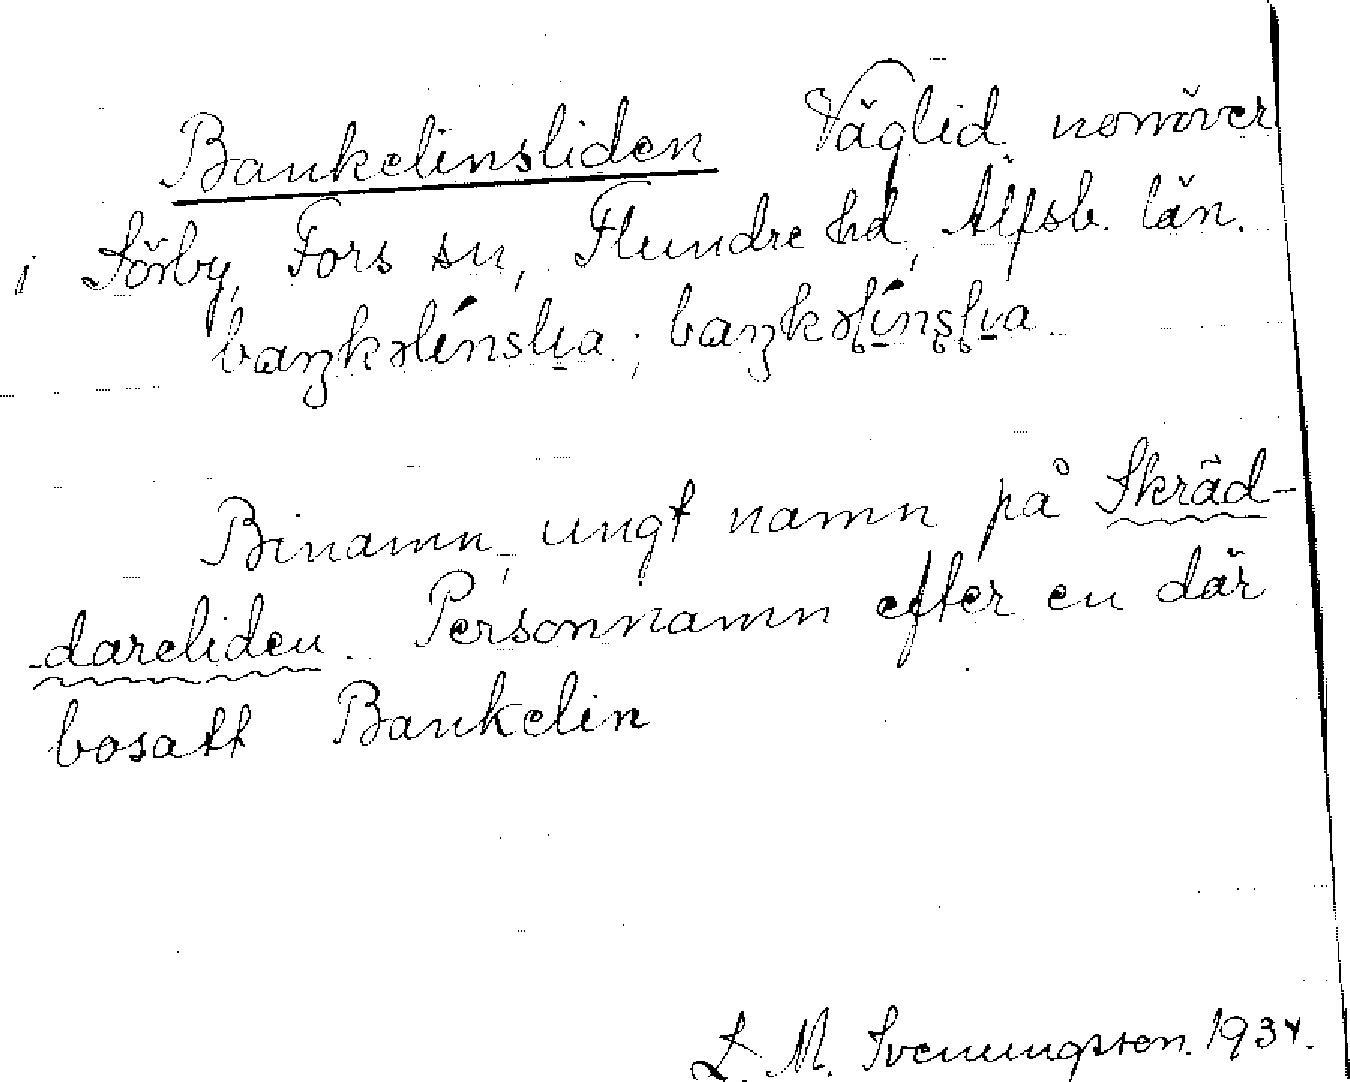 Bankelinsliden Väglid norröver
i Sörby, Fors sn, Flundre hd, Älfsb. län.
Binamn, ungt namn på Skräd-
dareliden. Personnamn efter en där
bosatt Bankelin
L. M. Svenungsson. 1934.